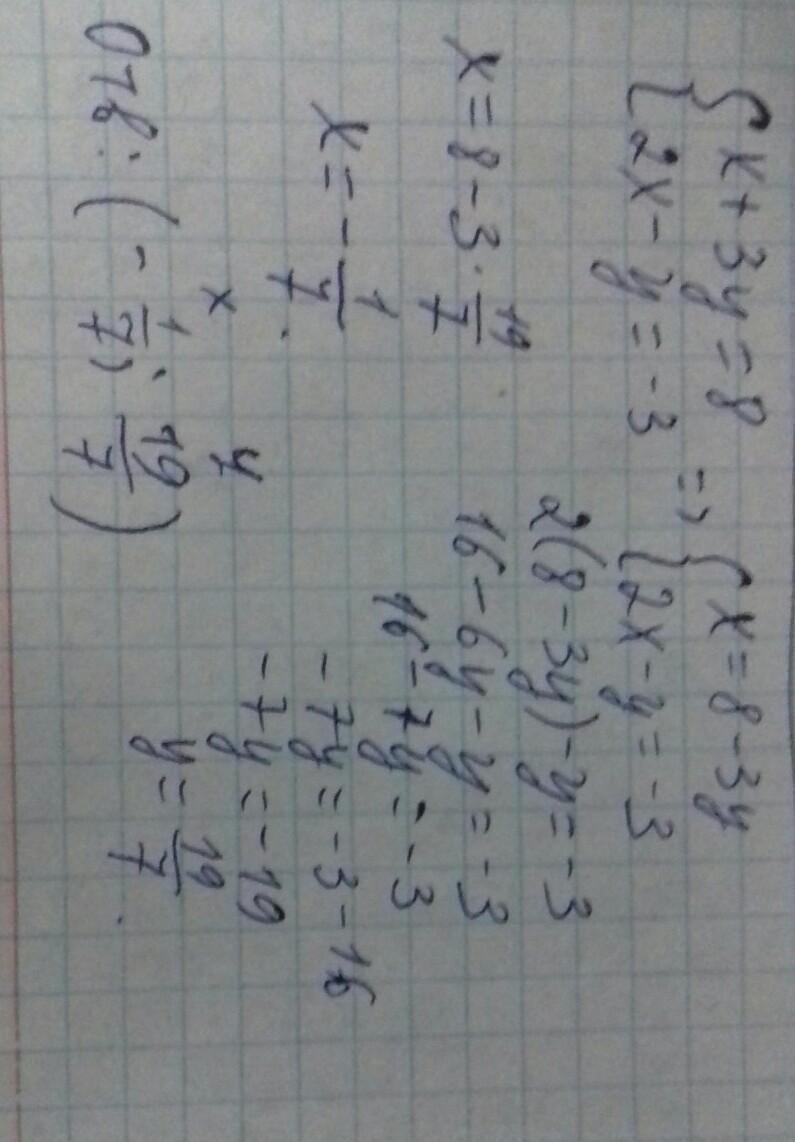 {x + 3y = 8
{2x - y = -3 => {x = 8 - 3y
{2x - y = -3
2(8 - 3y) - y = -3
16 - 6y - y = -3
16 - 7y = -3
-7y = -3 - 16
-7y = -19
y = 19/7.
x = 8 - 3 · 19/7
x = - 1/7.
x y
Отв: (- 1/7; 19/7)